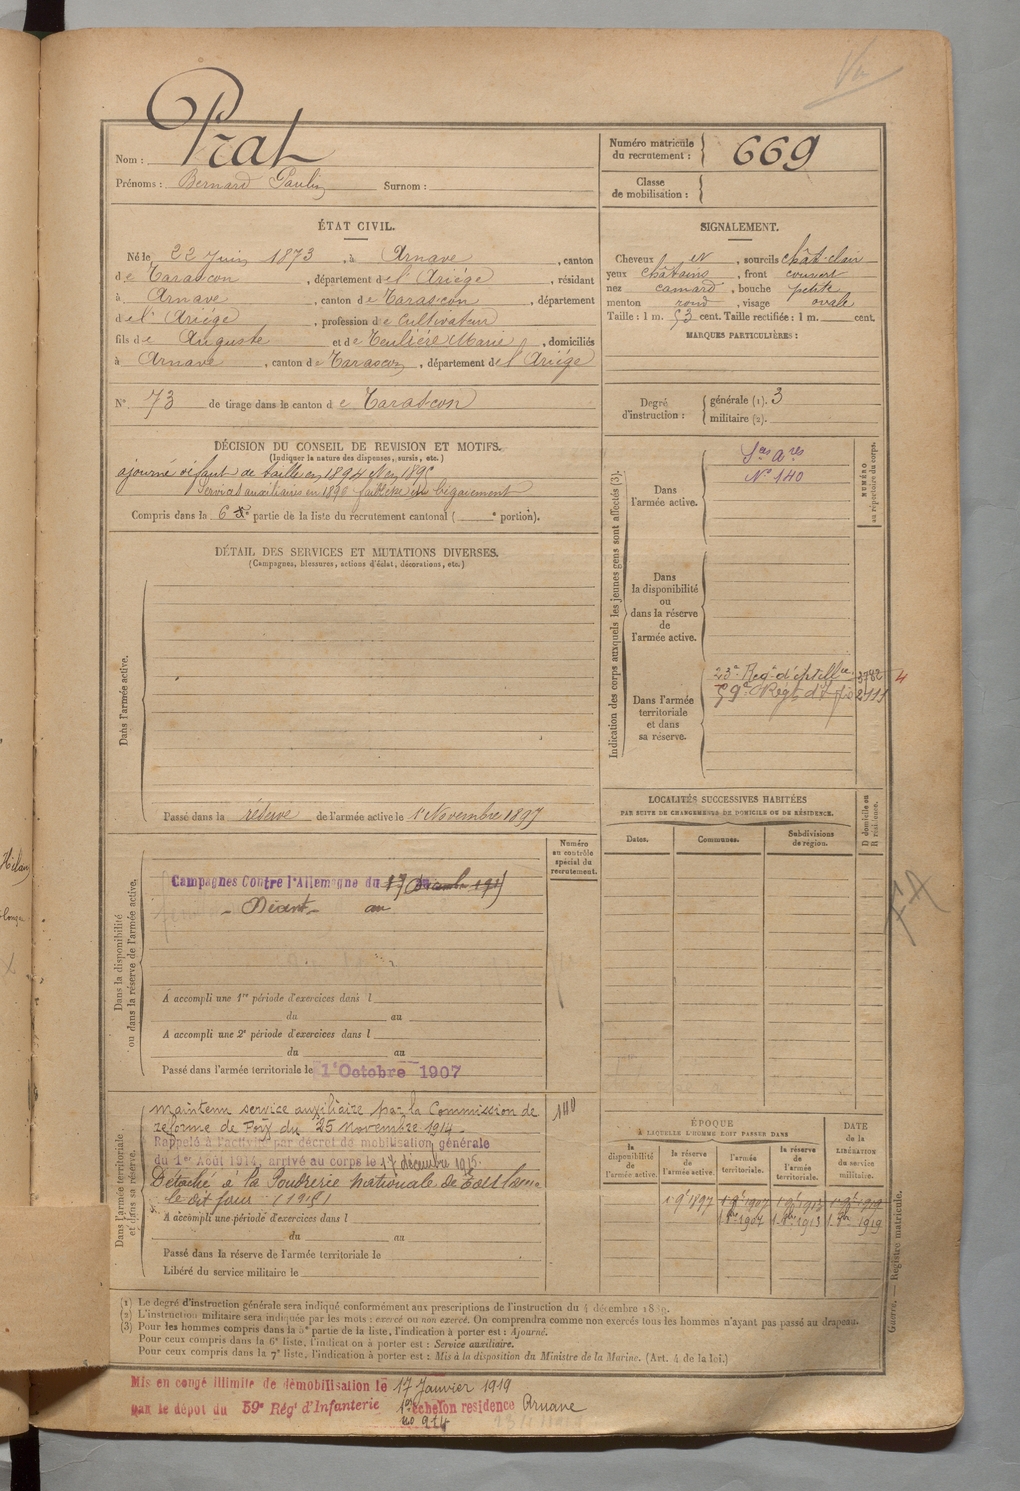 Vu
Nom : Prat
Prénoms : Bernard Paulin Surnom :
Numéro matricule du recrutement : 669
Classe de mobilisation :
ÉTAT CIVIL.
Né le 22 Juin 1873, à Arnave, canton
de Tarascon, département de l'Ariége, résidant
à Arnave, canton de Tarascon, département
de l'Ariége, profession de Cultivateur
fils de Auguste et de Teulière Marie, domiciliés
à Arnave, canton de Tarascon, département de l'Ariége
N° 73 de tirage dans le canton de Tarascon
SIGNALEMENT.
Cheveux et, sourcils chât. clair
yeux châtains, front couvert
nez camard, bouche petite
menton rond, visage ovale
Taille : 1 m. 53 cent. Taille rectifiée : 1 m. cent.
MARQUES PARTICULIÈRES :
Degré d'instruction : générale (1). 3
militaire (2).
DÉCISION DU CONSEIL DE REVISION ET MOTIFS.
(Indiquer la nature des dispenses, sursis, etc.)
ajourné défaut de taille en 1894 et en 1895
Services auxiliaires en 1896 faiblesse bégaiement
Compris dans la 6e partie de la liste du recrutement cantonal ( e portion).
DÉTAIL DES SERVICES ET MUTATIONS DIVERSES.
(Campagnes, blessures, actions d'éclat, décorations, etc.)
Dans l'armée active.
Passé dans la réserve de l'armée active le 1er Novembre 1897
Indication des corps auxquels les jeunes gens sont affectés (3).
NUMÉRO au répertoire du corps.
Dans l'armée active.
Ses ares
N° 140
Dans la disponibilité ou dans la réserve de l'armée active.
Dans l'armée territoriale et dans sa réserve.
23e Reg. d'Artillie 3782 4
59e Regt d'Infie 2111
LOCALITÉS SUCCESSIVES HABITÉES
PAR SUITE DE CHANGEMENTS DE DOMICILE OU DE RÉSIDENCE.
Dates. Communes. Subdivisions de région.
D domicile ou R résidence.
Numéro au contrôle spécial du recrutement.
Dans la disponibilité ou dans la réserve de l'armée active.
Campagnes Contre l'Allemagne du 17 Décembre 1915
Néant au
A accompli une 1re période d'exercices dans l
du au
A accompli une 2e période d'exercices dans l
du au
Passé dans l'armée territoriale le 1er Octobre 1907
Dans l'armée territoriale et dans sa réserve.
140
Maintenu service auxiliaire par la Commission de
reforme de Foix du 25 Novembre 1914
Rappelé à l'activité par décret de mobilisation générale
du 1er Août 1914, arrivé au corps le 17 décembre 1915.
Détaché à la Poudrerie Nationale de
le dit jour (1915)
A accompli une période d'exercices dans l
du au
Passé dans la réserve de l'armée territoriale le
Libéré du service militaire le
ÉPOQUE
À LAQUELLE L'HOMME DOIT PASSER DANS
la disponibilité de l'armée active.
la réserve de l'armée active.
l'armée territoriale.
la réserve de l'armée territoriale.
DATE de la LIBÉRATION du service militaire.
1 9e 1897 1 9e 1907 1 9e 1913 1 9e 1919
1 8bre 1907 1 8bre 1913 1 8bre 1919
FA
Guerre. — Registre matricule.
(1) Le degré d'instruction générale sera indiqué conformément aux prescriptions de l'instruction du 4 décembre 1889.
(2) L'instruction militaire sera indiquée par les mots : exercé ou non exercé. On comprendra comme non exercés tous les hommes n'ayant pas passé au drapeau.
(3) Pour les hommes compris dans la 5e partie de la liste, l'indication à porter est : Ajourné.
Pour ceux compris dans la 6e liste, l'indication à porter est : Service auxiliaire.
Pour ceux compris dans la 7e liste, l'indication à porter est : Mis à la disposition du Ministre de la Marine. (Art. 4 de la loi.)
Mis en congé illimité de démobilisation le 17 Janvier 1919
par le dépôt du 59e Régt d'Infanterie 1er échelon residence Arnave
no 914